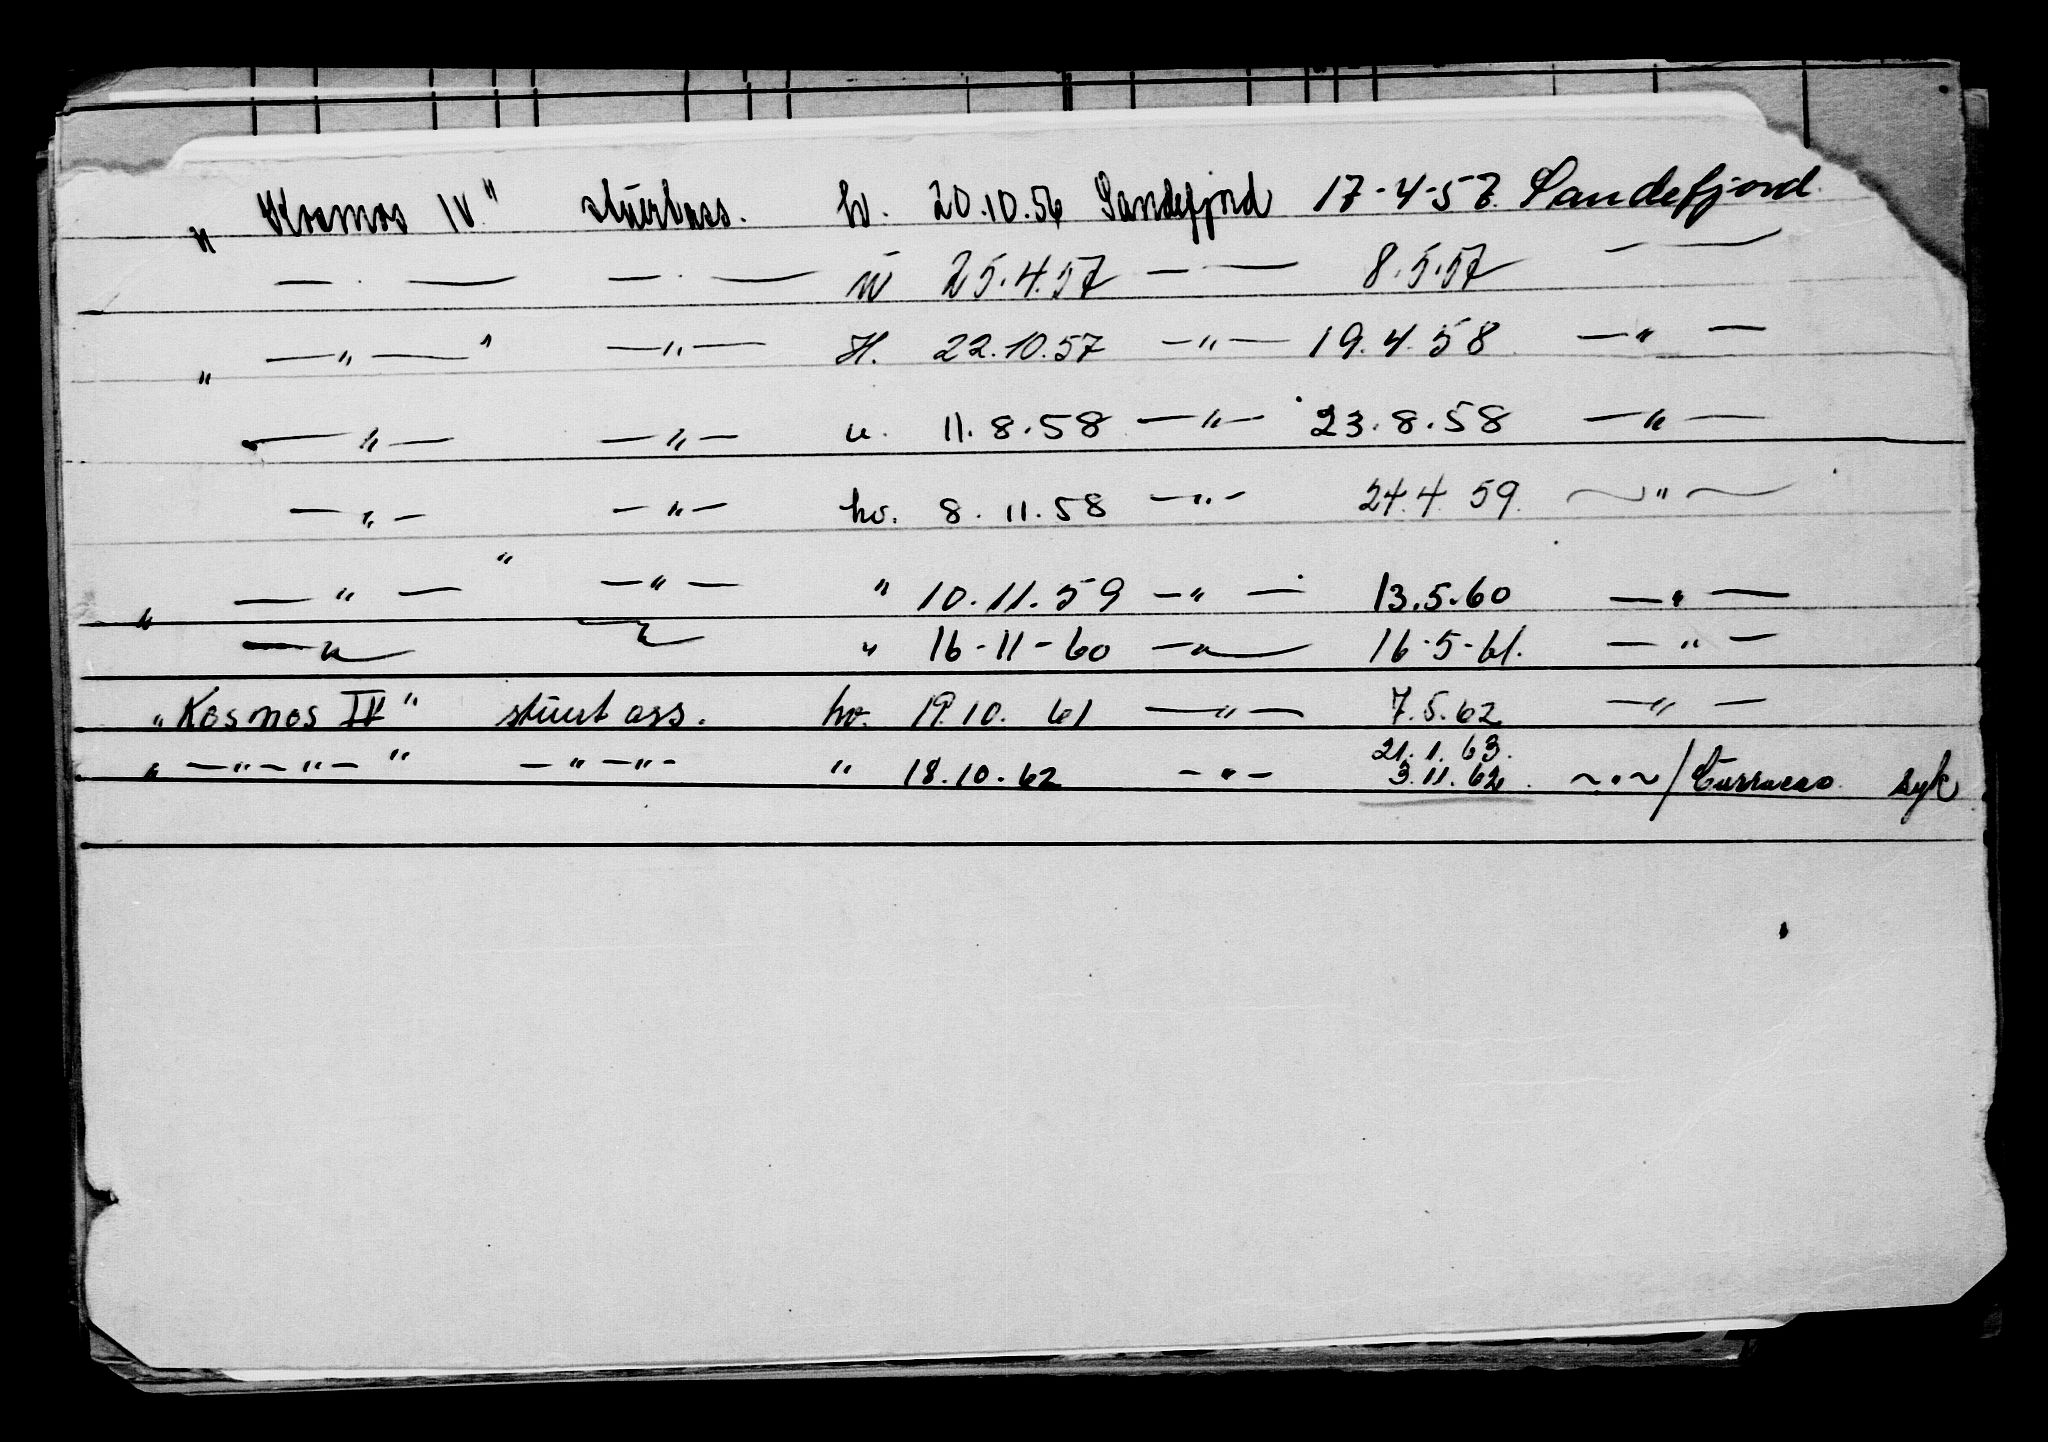 „ Kosmos IV." stuertass. hv. 20.10.56 Sandefjord 17-4-57. Sandefjord.
— · — — · — u 25.4.57 — · — 8.5.57 — —
„ —„—" —„— H. 22.10.57 —„— 19.4.58 —„—
—„— —„— u. 11.8.58 —„— 23.8.58 —„—
—„— —„— hv. 8.11.58 —„— 24.4 59. —„—
„ —„— " —„— " 10.11.59 —„— 13.5.60 —„—
—„— —„— „ 16-11-60 —„— 16-5-61. —„—
„Kosmos IV" stuert ass. hv. 19.10. 61 —„— 7.5.62 —„—
21.1.63.
„ —„—„— " —„—„— " 18.10.62 —„— 3.11.62. —„—/Curracao. syk